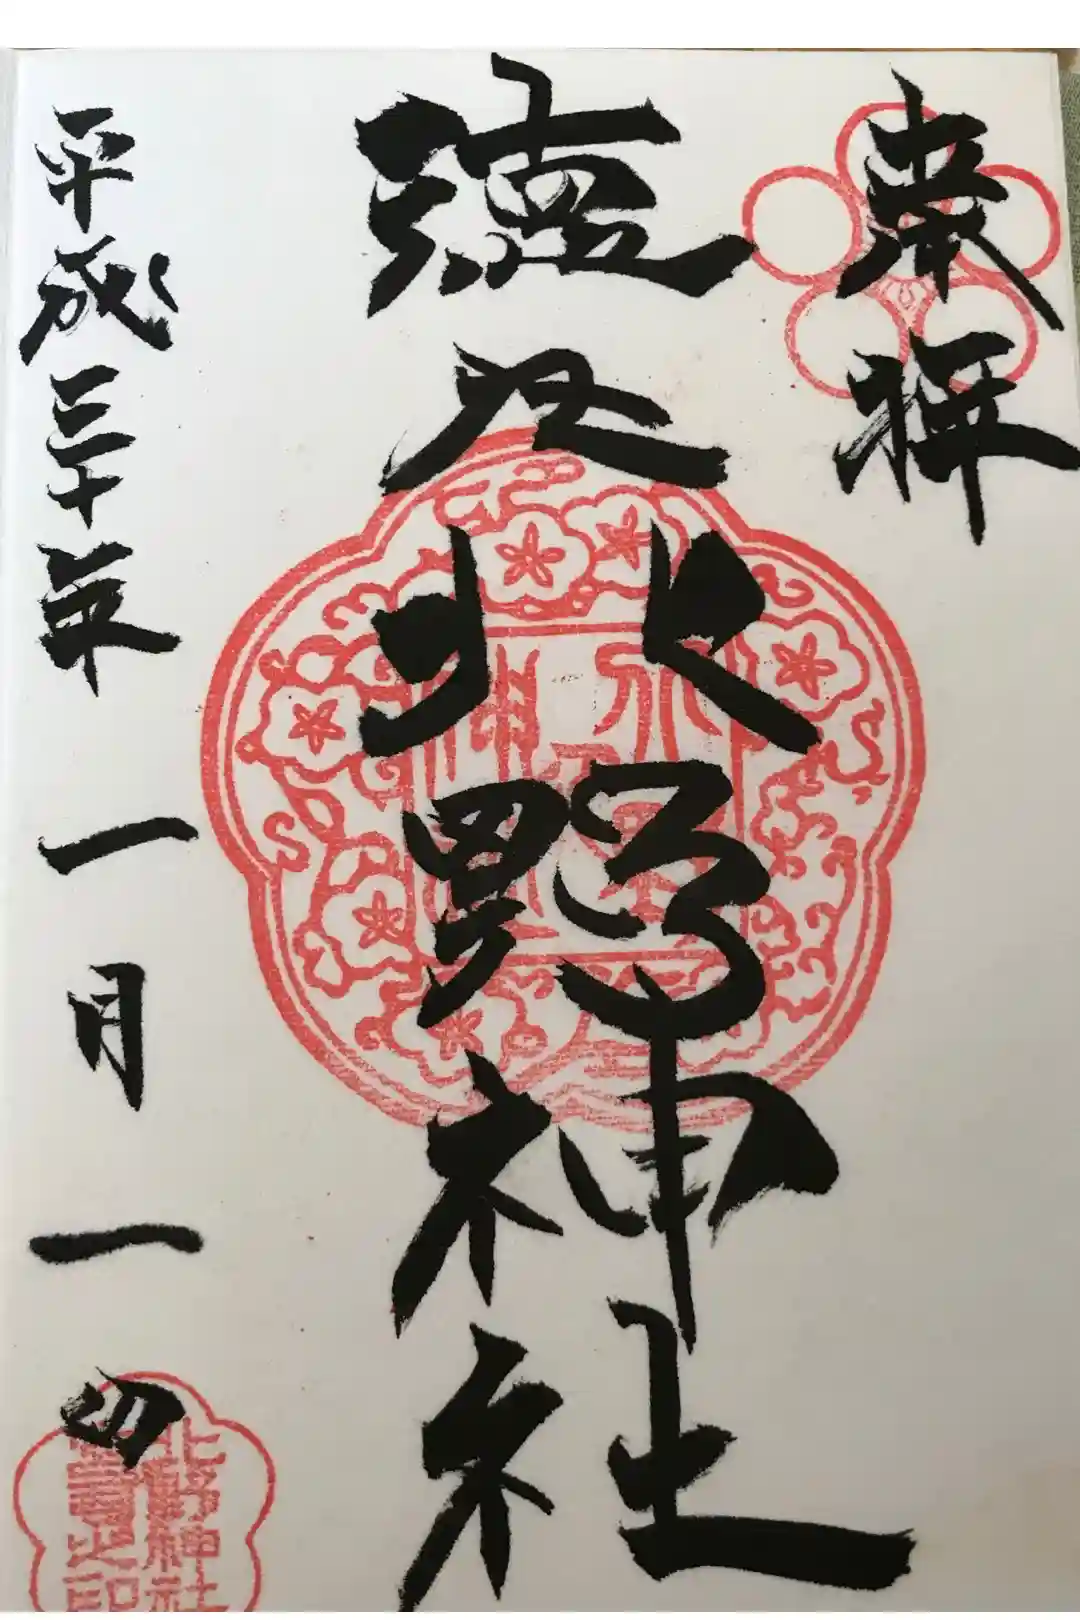 奉拝
徳丸北野神社
平成三十年一月一日
北野神社
之印